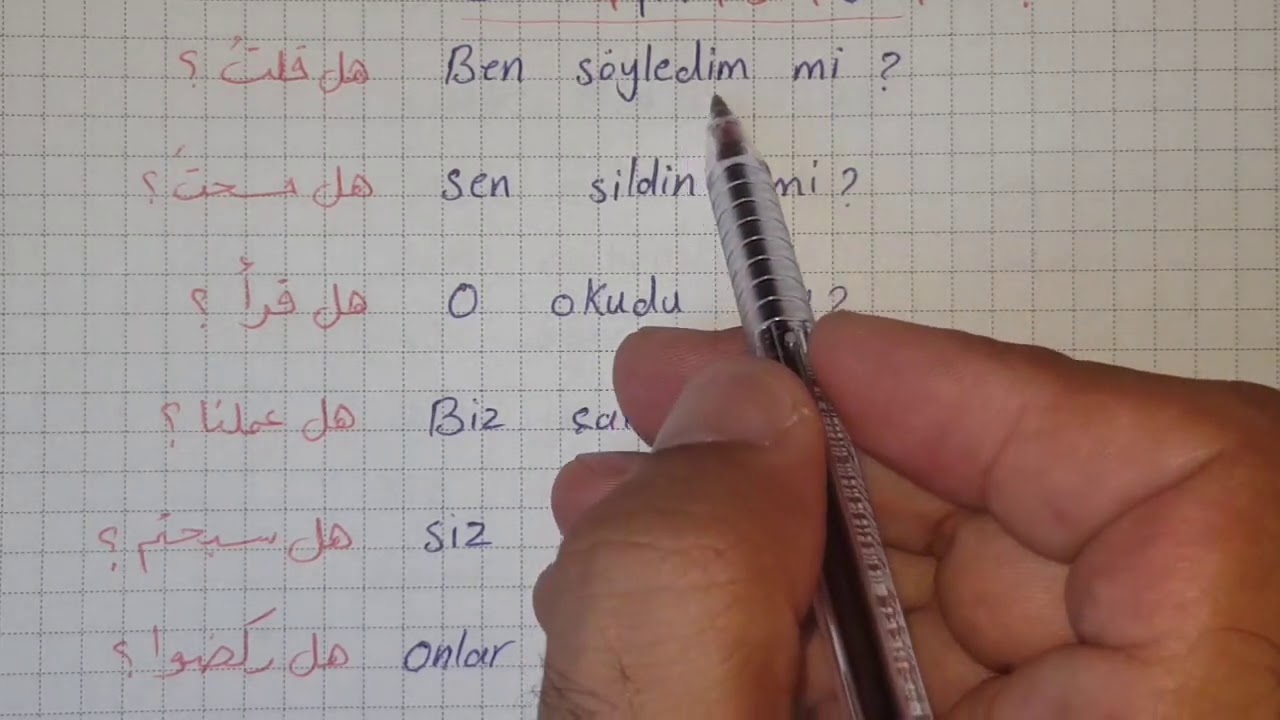 هل قلتُ ؟ Ben söyledim mi ?
هل مسحتَ ؟ sen sildin mi ?
هل قرأ ؟ O okudu ?
هل عملنا ؟ Biz
هل سبحتم ؟ siz
هل ركضوا ؟ onlar